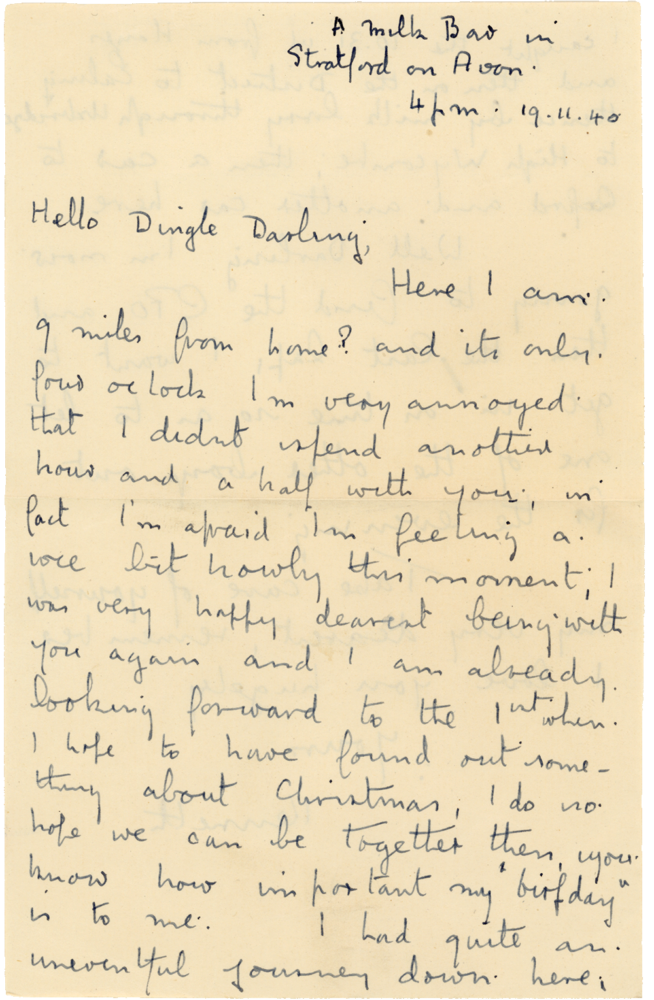 A milk Bar in
Stratford on Avon.
4pm. 19.11.40
Hello Dingle Darling,
Here I am.
9 miles from home? and its only.
four oclock I'm very annoyed.
that I didnt spend another
hour and a half with you; in
fact I'm afraid I'm feeling a.
wee bit howly this moment; I
was very happy dearest being with
you again and I am already.
looking forward to the 1st when.
I hope to have found out some-
thing about Christmas, I do so.
hope we can be together then, you.
know how important my "birfday"
is to me. I had quite an.
uneventful journey down here;